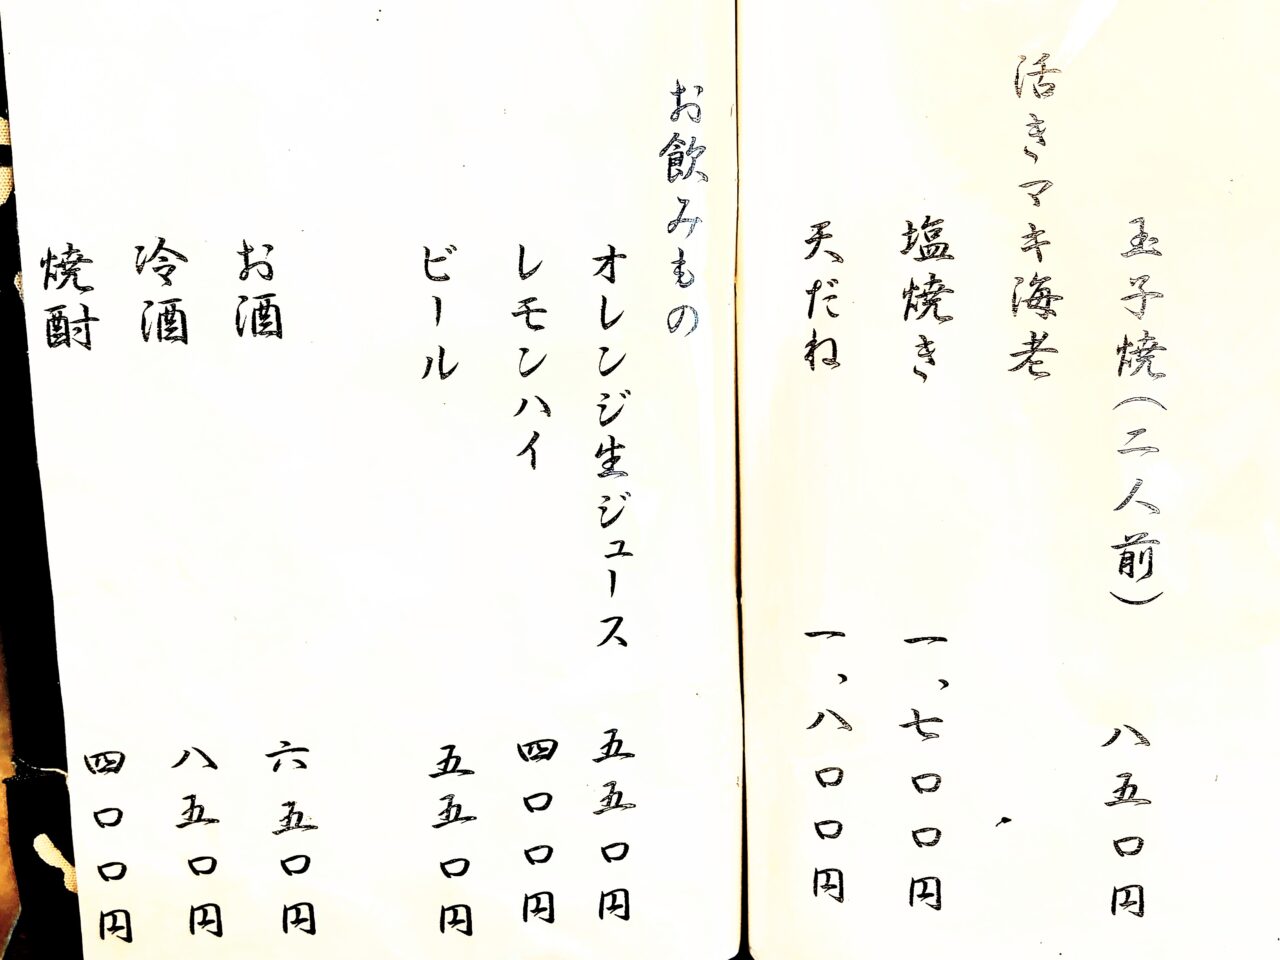 玉子焼(二人前) 八五〇円
活きマキ海老
塩焼き 一、七〇〇円
天だね 一、八〇〇円
お飲みもの
オレンジ生ジュース 五五〇円
レモンハイ 四〇〇円
ビール 五五〇円
お酒 六五〇円
冷酒 八五〇円
焼酎 四〇〇円